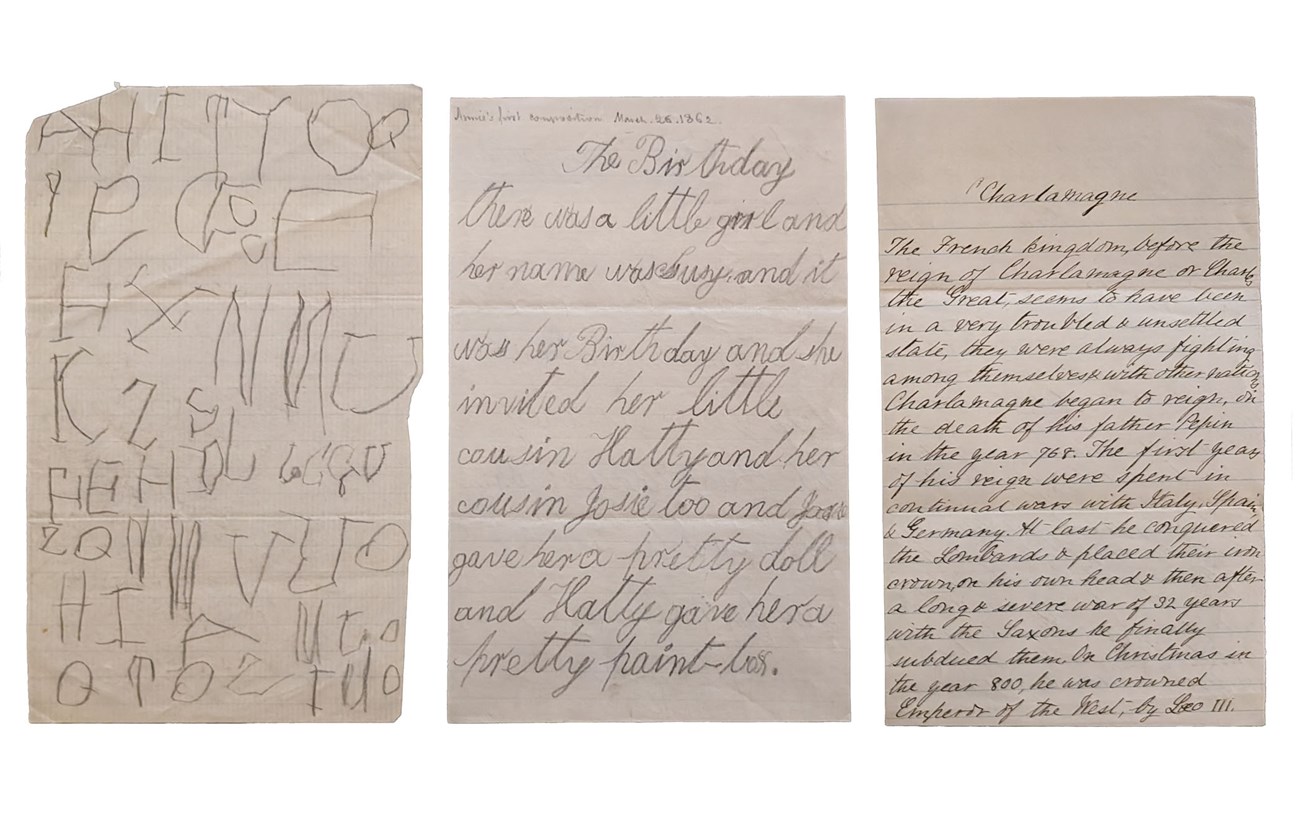 A H I T Y O Q
Y B G E
F X N M U
K Z S
F E H D L G U
Z Q N M V U O
H I A M
Q T O Z I M O
Annie's first composition March.26.1862.
The Birthday
there was a little girl and
her name was Susy. and it
was her Birthday and she
invited her little
cousin Hatty and her
cousin Josie too and Josie
gave her a pretty doll
and Hatty gave her a
pretty paint-box.
Charlamagne
The French kingdom, before the
reign of Charlamagne or Charles
the Great, seems to have been
in a very troubled & unsettled
state, they were always fighting
among themselves & with other nations
Charlamagne began to reign, on
the death of his father Pepin
in the year 768. The first years
of his reign were spent in
continual wars with Italy, Spain,
& Germany. At last he conquered
the Lombards & placed their iron
crown, on his own head & then after
a long & severe war of 32 years
with the Saxons he finally
subdued them. On Christmas in
the year 800, he was crowned
Emperor of the West, by Leo III.